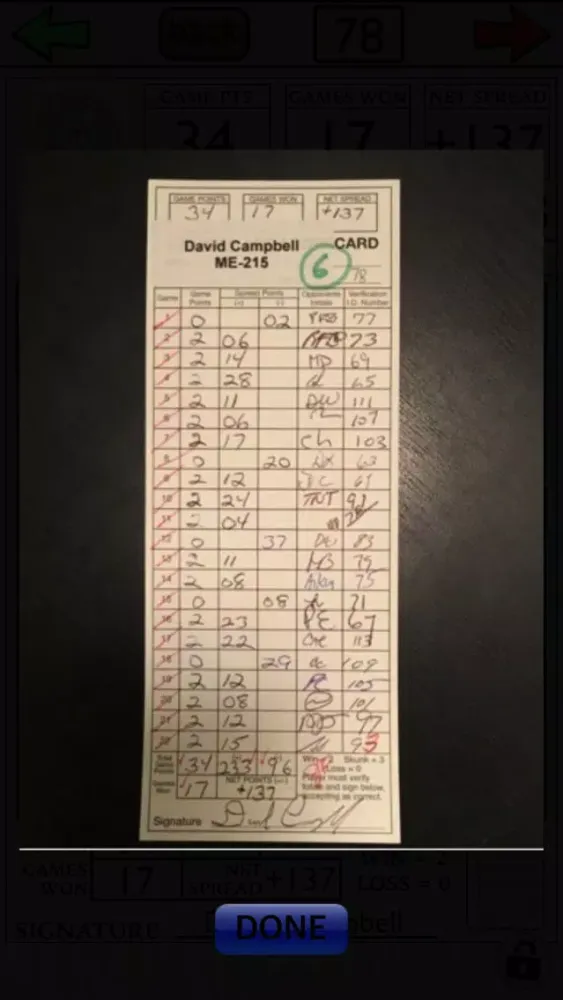 78
GAME PTS GAMES WON NET SPREAD
34 17 +137
GAME POINTS GAMES WON NET SPREAD
34 17 +137
David Campbell CARD
ME-215
6 78
Game Game Points Spread Points (+) (-) Opponents Initials Verification I.D. Number
1 0 02 77
2 2 06 73
3 2 14 MP 69
4 2 28 65
5 2 11 DW 111
6 2 06 107
7 2 17 Ch 103
8 0 20 63
9 2 12 61
10 2 24 TNT
11 2 04
12 0 37 83
13 2 11 MB 79
14 2 08 75
15 0 08 71
16 2 23 PE 67
17 2 22 113
18 0 29 109
19 2 12 105
20 2 08 101
21 2 12 97
22 2 15 93
Total Game Points 34 233 96 Win = 2 Skunk = 3
Loss = 0
Games Won 17 NET POINTS (+/-) +137 Player must verify
totals and sign below,
accepting as correct.
Signature
GAMES WON 17 NET SPREAD +137 LOSS = 0
SIGNATURE
DONE